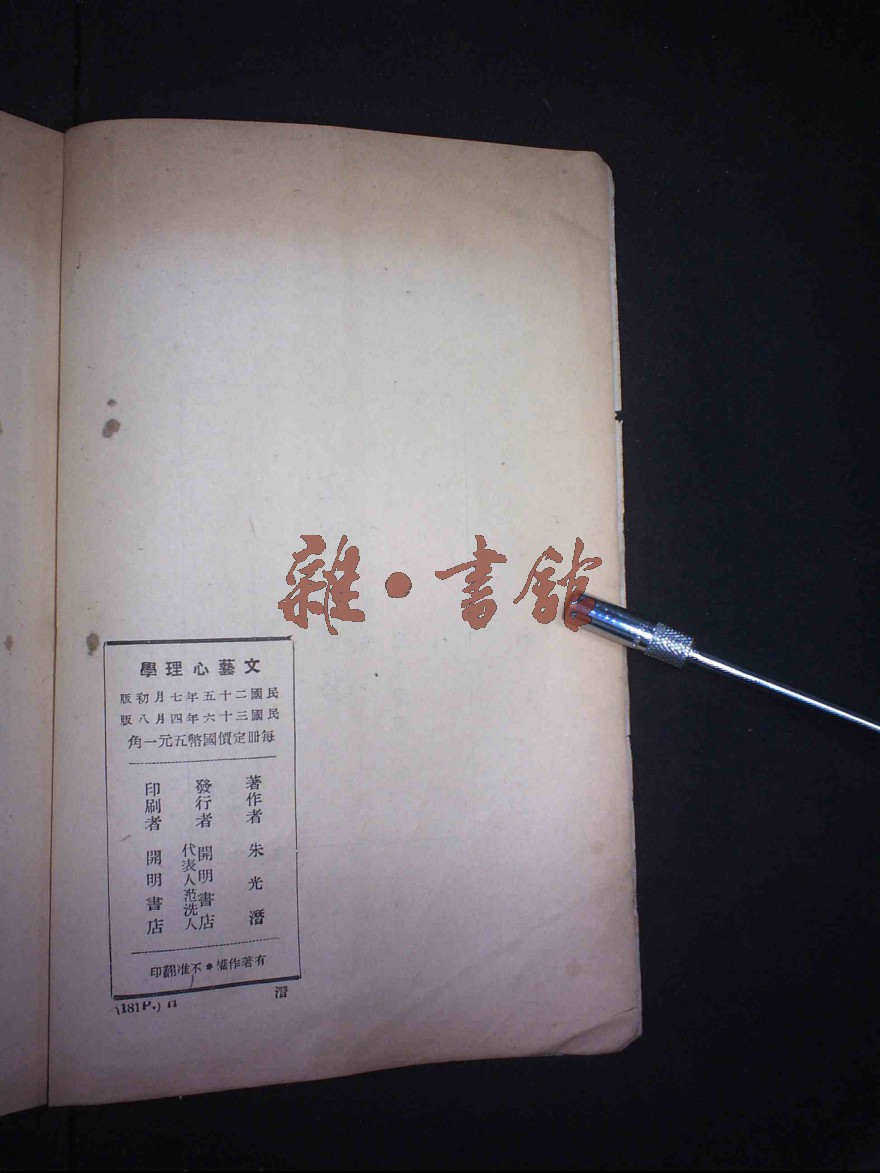 雜·書館
文藝心理學
民國二十五年七月初版
民國三十六年四月八版
每冊定價國幣五元一角
著作者 朱光潛
發行者 開明書店
代表人范洗人
印刷者 開明書店
有著作權＊不准翻印
(181P.)
潛